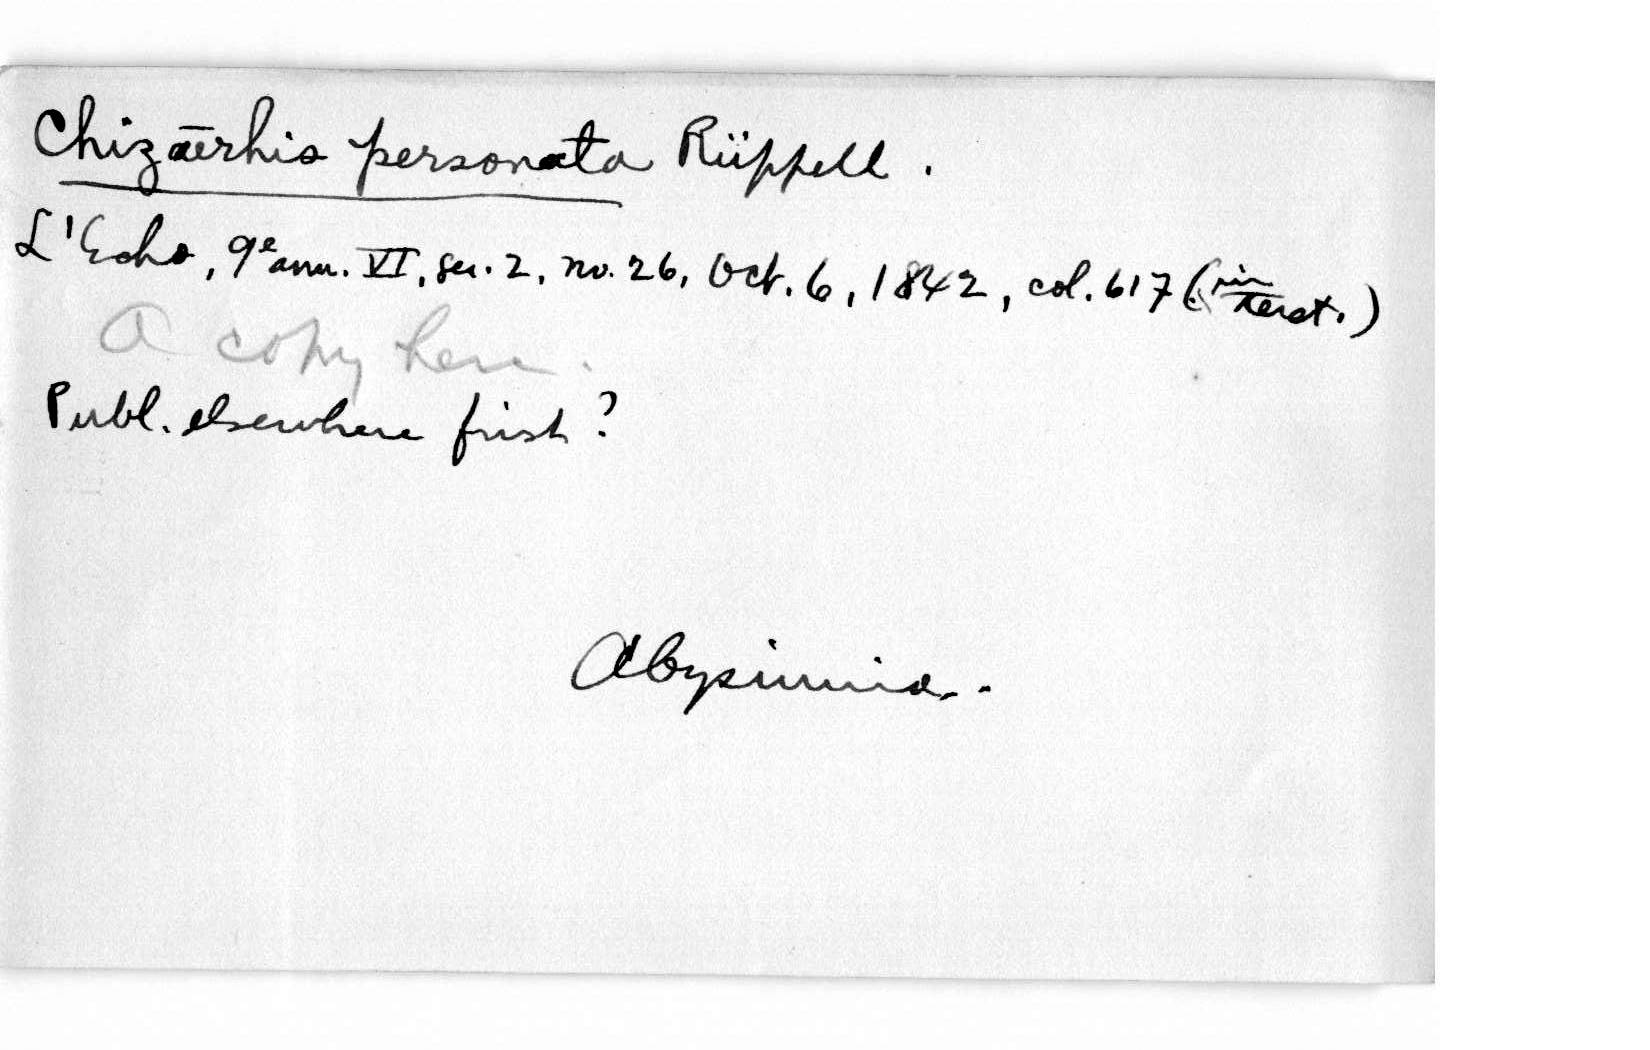 Chizaërhis personata Rüppell.
L'Echo, 9e ann. VI, ser. 2, no. 26, Oct. 6, 1842, col. 617 (in text.)
A copy here.
Publ. elsewhere first?
Abyssinia.